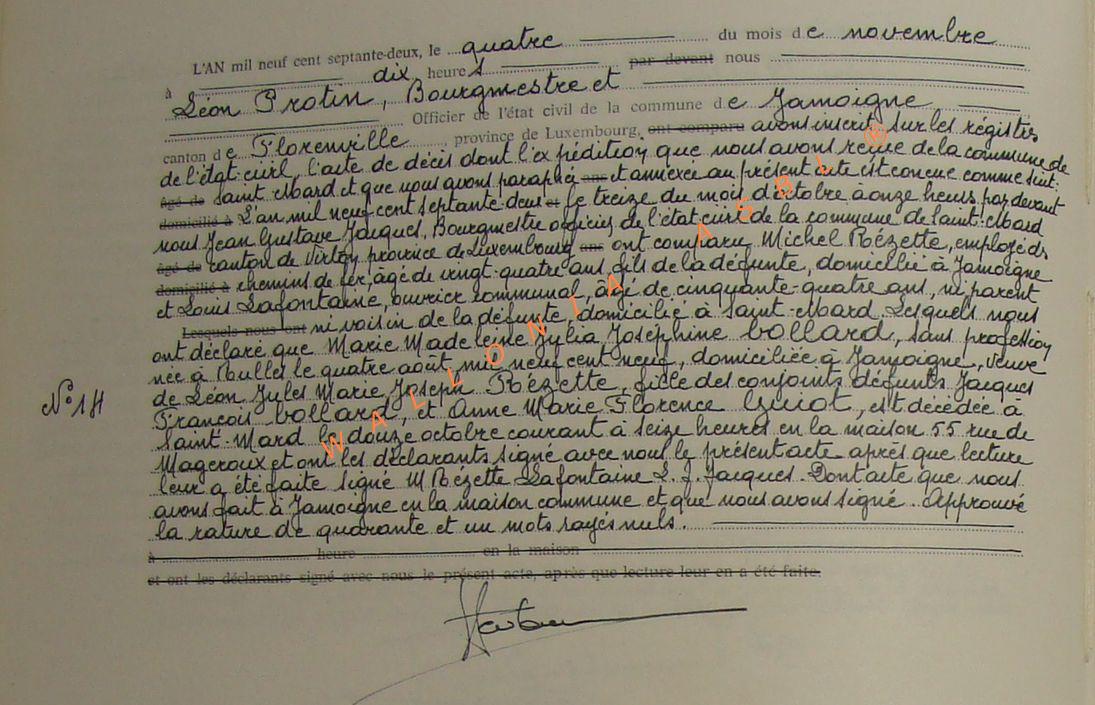 L'AN mil neuf cent septante-deux, le quatre du mois de novembre
à dix heures par devant nous
Léon Protin, Bourgmestre et
Officier de l'état civil de la commune de Jamoigne
canton de Florenville, province de Luxembourg, ont comparu avons inscrit sur les régistres
de l'état-civil, l'acte de décès dont l'expédition que nous avons reçue de la commune de
âgé de Saint-Mard et que nous avons paraphé ans et annexée au présent acte est conçue comme suit:
domicilié à L'an mil neuf cent septante-deux et le treize du mois d'octobre à onze heures, par devant
nous Jean Gustave Jacques, Bourgmestre officier de l'état civil de la commune de Saint-Mard
âgé de canton de Virton province de Luxembourg ans ont comparu Michel Rézette, employé ds
domicilié à chemins de fer, âgé de vingt-quatre ans, fils de la défunte, domicilié à Jamoigne
et Louis Lafontaine, ouvrier communal, âgé de cinquante-quatre ans, ni parent
Lesquels nous ont ni voisin de la défunte, domicilié à Saint-Mard. Lesquels nous
ont déclaré que Marie Madeleine Julia Joséphine Collard, sans profession
née à Rulles le quatre août mil neuf cent neuf, domiciliée à Jamoigne, veuve
de Léon Jules Marie Joseph Rézette, fille des conjoints défunts Jacques
N° 14
François Collard, et Anne Marie Florence Guiot, est décédée à
Saint-Mard le douze octobre courant à seize heures en la maison 55 rue de
Mageroux et ont les déclarants signé avec nous le présent acte après que lecture
leur a été faite signé M Rézette Lafontaine L. J. Jacques. Dont acte que nous
avons fait à Jamoigne en la maison commune et que nous avons signé. Approuvé
la rature de quarante et un mots rayés nuls.
à heure en la maison
et ont les déclarants signé avec nous le présent acte, après que lecture leur en a été faite.
WALLONIA ASBL ®